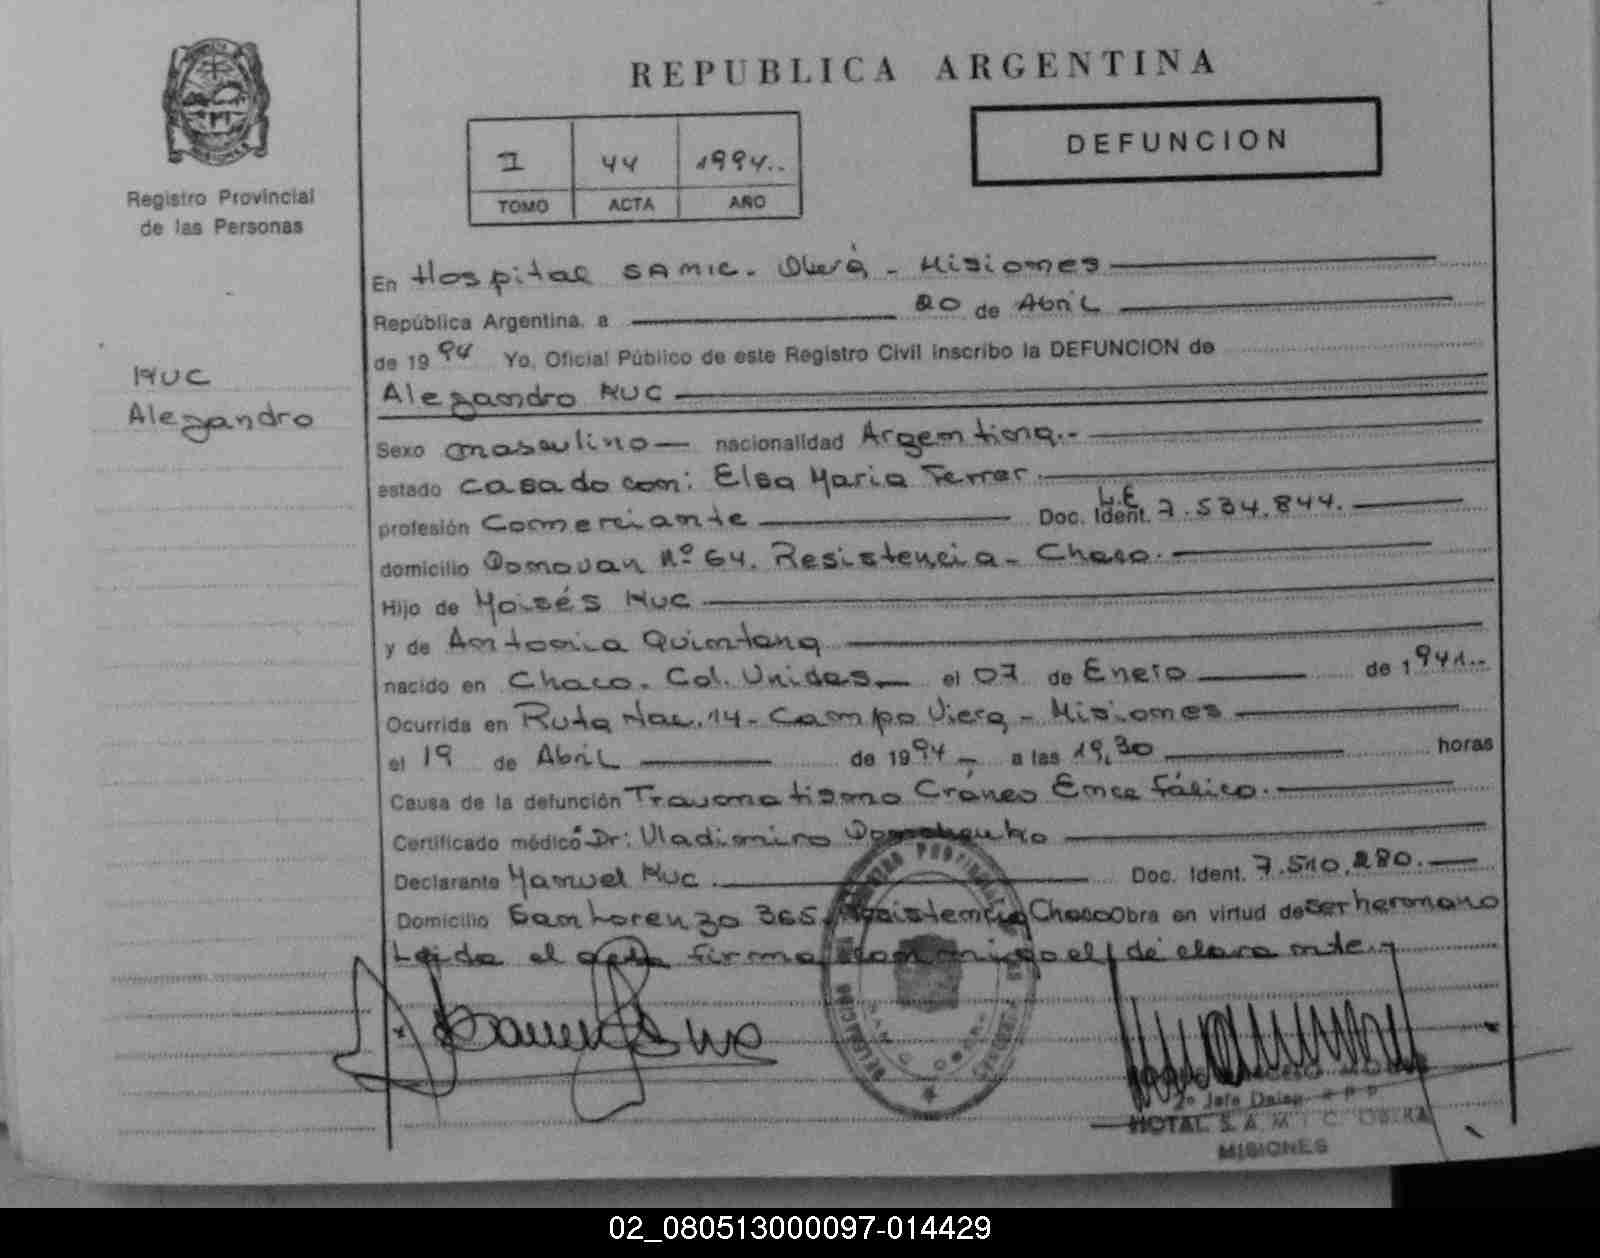 REPUBLICA ARGENTINA
DEFUNCION
I 44 1994..
TOMO ACTA AÑO
Registro Provincial
de las Personas
KUC
Alejandro
En Hospital SAMIC. Oberá - Misiones
República Argentina, a 20 de Abril
de 1994 Yo, Oficial Público de este Registro Civil inscribo la DEFUNCION de
Alejandro KUC
Sexo masculino nacionalidad Argentina.-
estado casado con: Elsa Maria Ferrer.
profesión Comerciante Doc. Ident. L.E 7.534.844.
domicilio Donovan Nº 64. Resistencia - Chaco.
Hijo de Moisés Kuc
y de Antonia Quintana
nacido en Chaco. Col. Unidas el 07 de Enero de 1941..
Ocurrida en Ruta Nac. 14 - Campo Viera - Misiones
el 19 de Abril de 1994 a las 19,30 horas
Causa de la defunción Traumatismo Cráneo Encefálico.
Certificado médico Dr: Vladimiro
Declarante Manuel Kuc. Doc. Ident. 7.510.280.
Domicilio San Lorenzo 365. Resistencia Chaco Obra en virtud de ser hermano
Leida el acta firma conmigo el declarante.-
2º Jefe
HOTAL S.A.M.I.C. OBERA
MISIONES
02_080513000097-014429